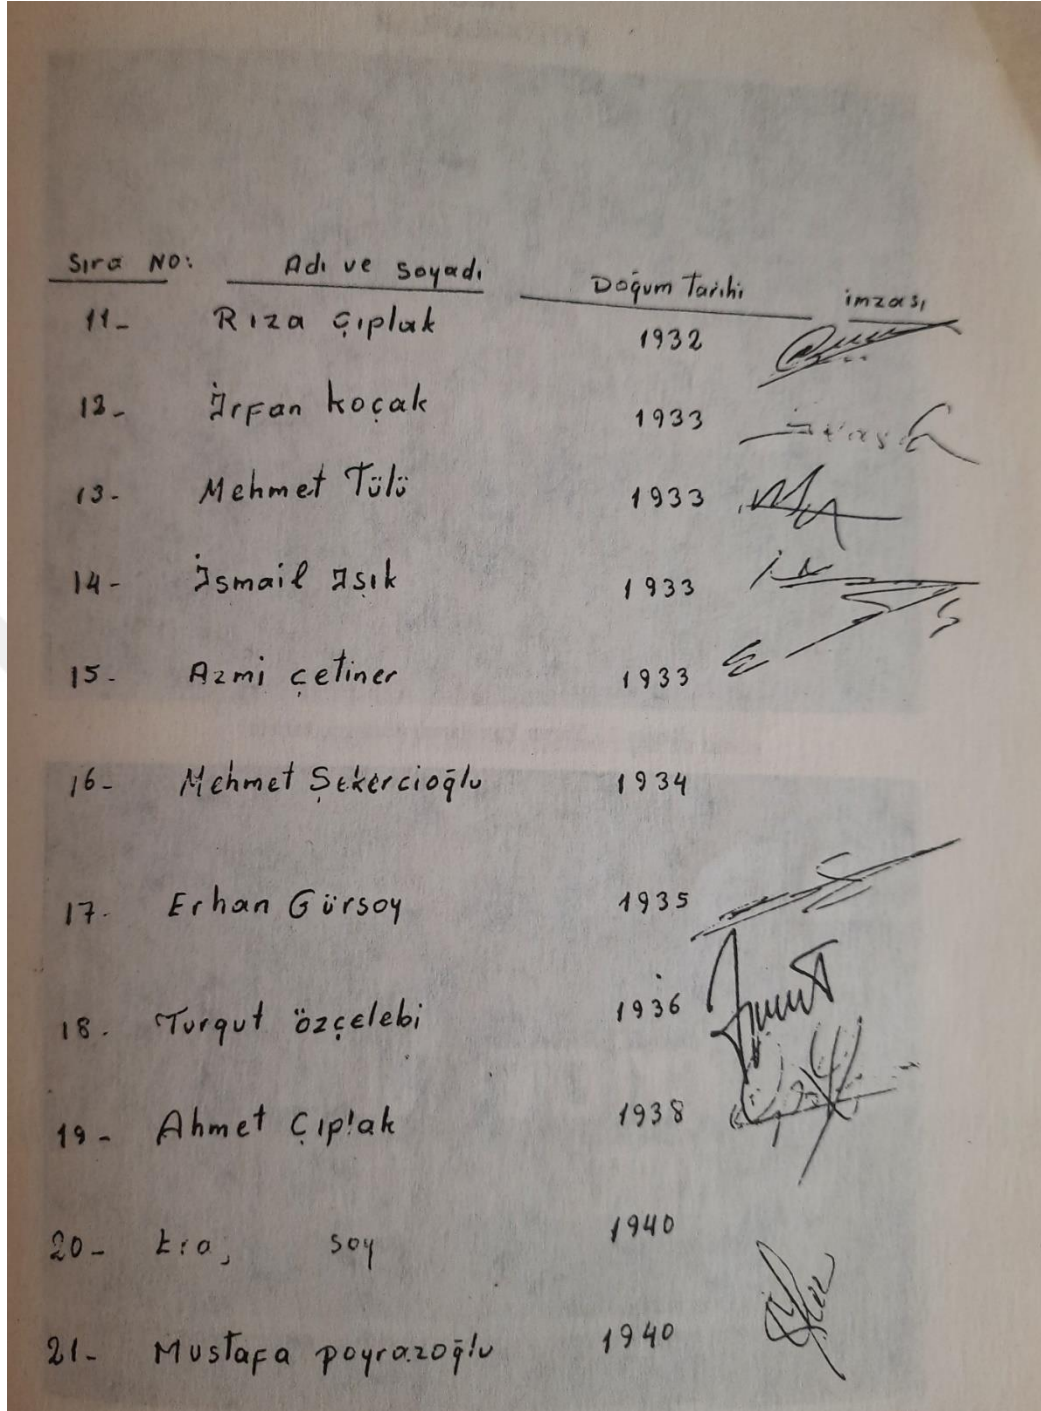 Sıra No: Adı ve Soyadı Doğum Tarihi imzası
11- Rıza Çıplak 1932
12- İrfan koçak 1933
13- Mehmet Tülü 1933
14- İsmail Işık 1933
15- Azmi çetiner 1933
16- Mehmet Şekercioğlu 1934
17- Erhan Gürsoy 1935
18- Turgut özçelebi 1936
19- Ahmet Çıplak 1938
20- soy 1940
21- Mustafa poyrazoğlu 1940